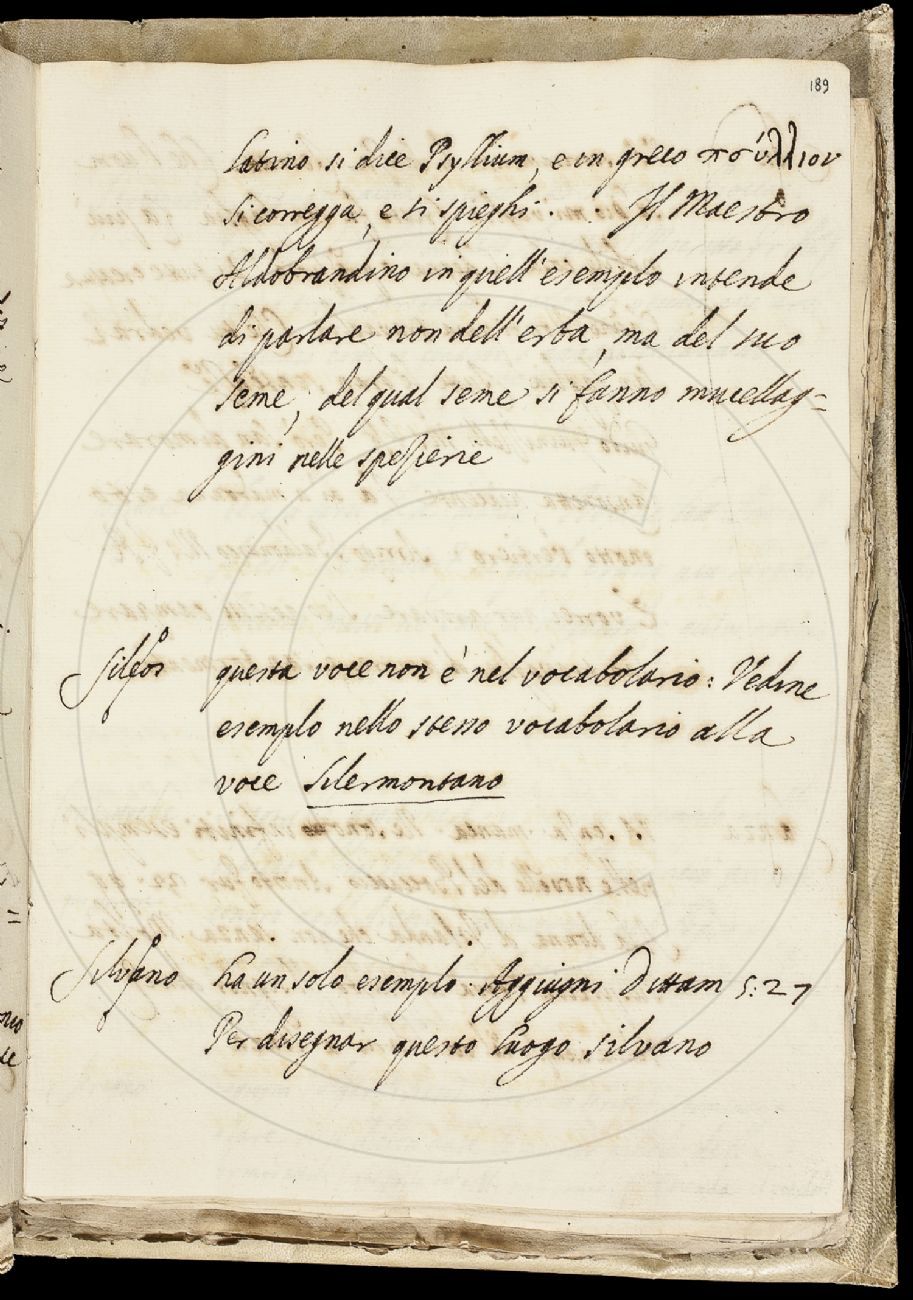 189
Latino si dice Psyllium, e in greco πσύλλιον
si corregga, e si spieghi. Il Maestro
Aldobrandino in quell'esemplo intende
di parlare non dell'erba, ma del suo
seme, del qual seme si fanno mucellag=
gini nelle spezierie
Sileos questa voce non è nel vocabolario: Vedine
esemplo nello stesso vocabolario alla
voce Silermontano
Silvano ha un solo esemplo. Aggiugni Dittam 5:27
Per disegnar questo luogo silvano